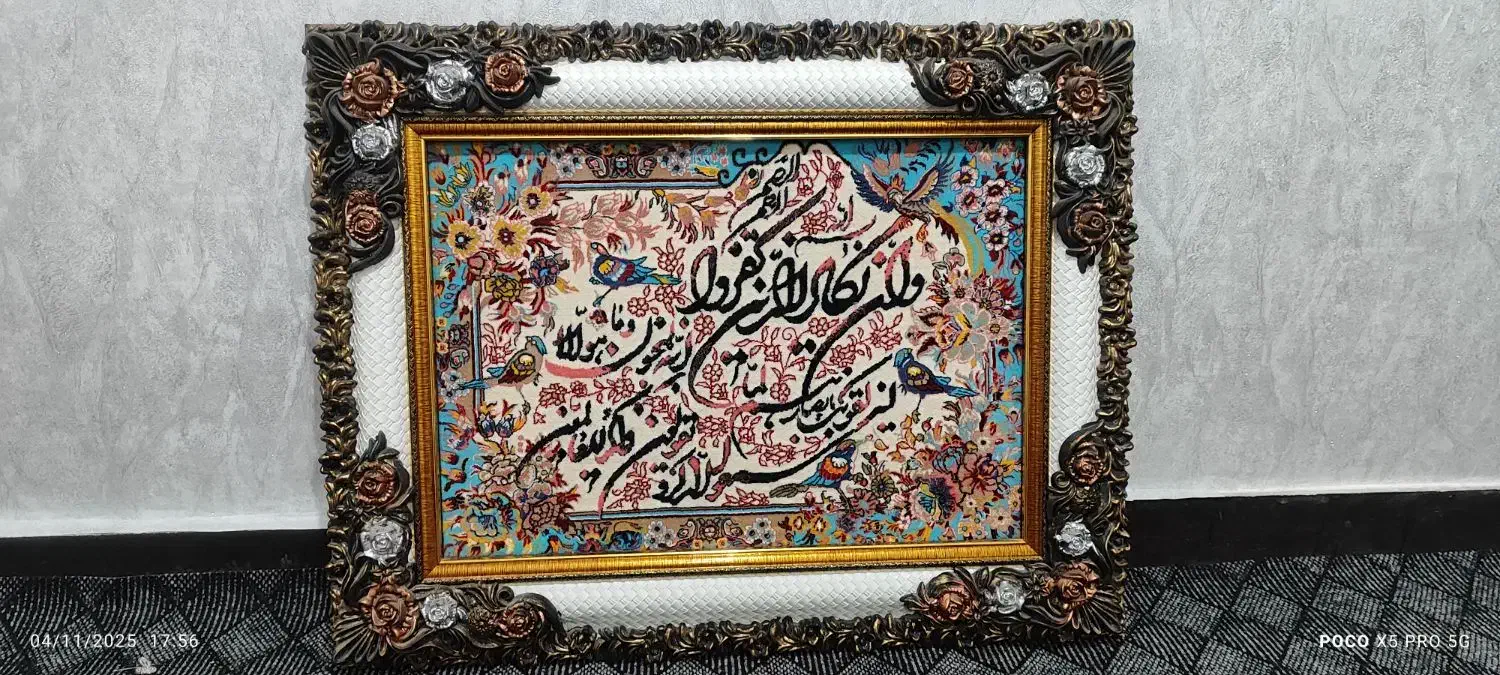 بسم الله الرحمن الرحیم
وان یکاد الذین کفروا
لیزلقونک بابصارهم لما
سمعوا الذکر و یقولون
انه لمجنون و ما هو الا
ذکر للعالمین
04/11/2025 17:56
POCO X5 PRO 5G